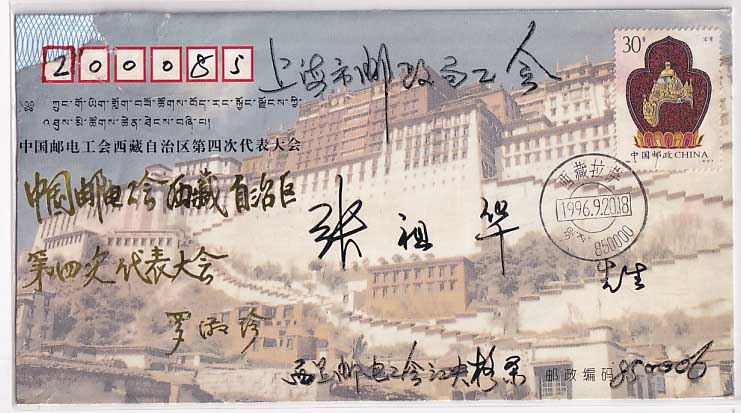 200085
上海市邮政局工会
30分
中国邮政CHINA
ཀྲུང་གོ་ཡིག་སྐྱེལ་བཟོ་ཚོགས་བོད་རང་སྐྱོང་ལྗོངས་ཀྱི་
འཐུས་མི་ཚོགས་ཆེན་ཐེངས་བཞི་པ།
中国邮电工会西藏自治区第四次代表大会
中国邮电工会西藏自治区
第四次代表大会
张祖华
先生
西藏拉萨
1996.9.20.18
850000
罗
珍
西
邮电工会江央格桑
邮政编码 850006